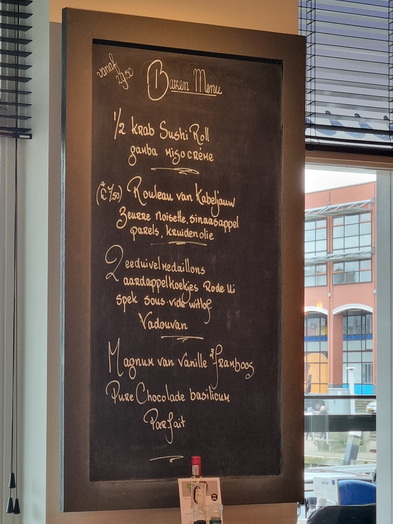 vanaf
Bazen Menu
1/2 krab Sushi Roll
gamba miso crème
Rouleau van Kabeljauw
Beurre noisette, sinaasappel
parels, kruidenolie
Zeeduivelmedaillons
aardappelkoekjes Rode Ui
spek sous-vide witlof
Vadouvan
Magnum van Vanille & framboos
Pure Chocolade basilicum
Parfait